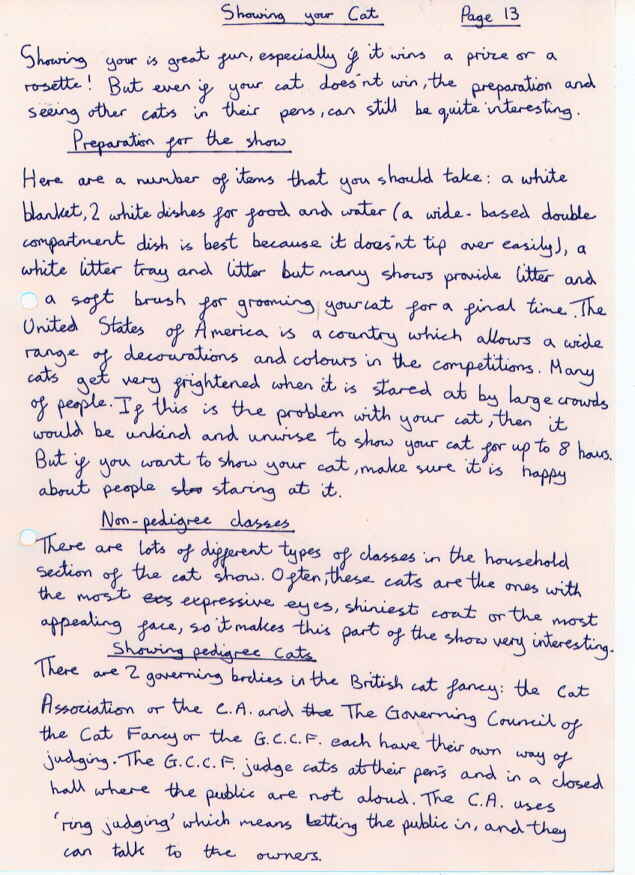 Showing your Cat Page 13
Showing your is great fun, especially if it wins a prize or a
rosette! But even if your cat does'nt win, the preparation and
seeing other cats in their pens, can still be quite interesting.
Preparation for the show
Here are a number of items that you should take: a white
blanket, 2 white dishes for food and water (a wide-based double
compartment dish is best because it does'nt tip over easily), a
white litter tray and litter but many shows provide litter and
a soft brush for grooming your cat for a final time. The
United States of America is a country which allows a wide
range of decourations and colours in the competitions. Many
cats get very frightened when it is stared at by large crowds
of people. If this is the problem with your cat, then it
would be unkind and unwise to show your cat for up to 8 hours.
But if you want to show your cat, make sure it is happy
about people staring at it.
Non-pedigree classes
There are lots of different types of classes in the household
section of the cat show. Often, these cats are the ones with
the most expressive eyes, shiniest coat or the most
appealing face, so it makes this part of the show very interesting.
Showing pedigree Cats
There are 2 governing bodies in the British cat fancy: the Cat
Association or the C.A. and the The Governing Council of
the Cat Fancy or the G.C.C.F. each have their own way of
judging. The G.C.C.F. judge cats at their pens and in a closed
hall where the public are not aloud. The C.A. uses
'ring judging' which means letting the public in, and they
can talk to the owners.